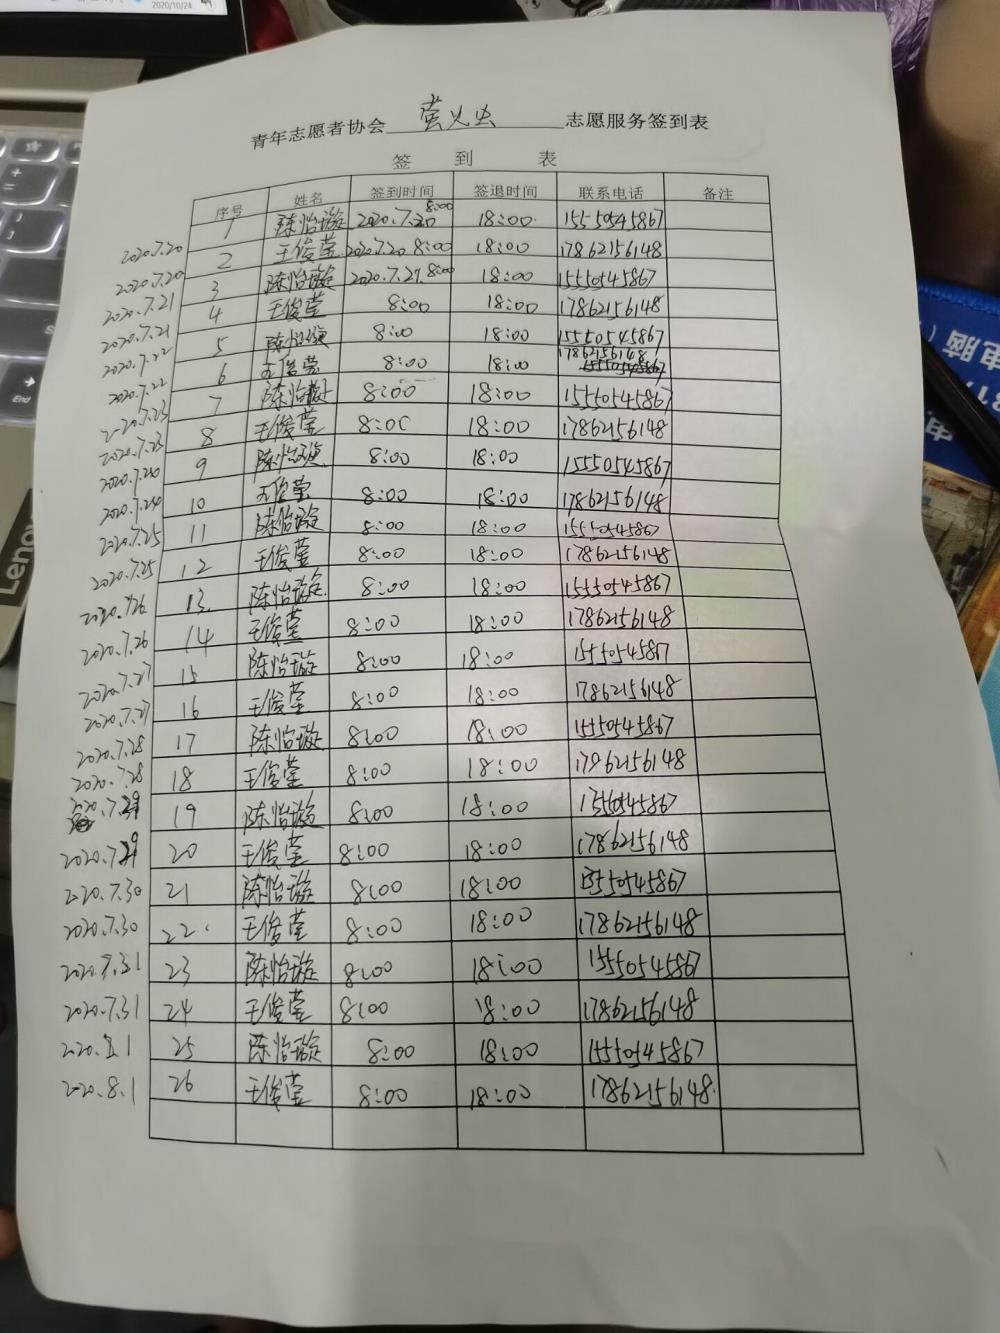 2020/10/24
青年志愿者协会 萤火虫 志愿服务签到表
签 到 表
序号 姓名 签到时间 签退时间 联系电话 备注
1 陈怡璇 2020.7.20 8:00 18:00 15550545867
2020.7.20 2 王俊莹 2020.7.20 8:00 18:00 17862156148
2020.7.20 3 陈怡璇 2020.7.21 8:00 18:00 15550545867
2020.7.21 4 王俊莹 8:00 18:00 17862156148
2020.7.21 5 陈怡璇 8:00 18:00 15550545867
2020.7.22 6 王俊莹 8:00 18:00 17862156148
2020.7.22 7 陈怡璇 8:00 18:00 15550545867
2020.7.23 8 王俊莹 8:00 18:00 17862156148
2020.7.23 9 陈怡璇 8:00 18:00 15550545867
10 王俊莹 8:00 18:00 17862156148
2020.7.24 11 陈怡璇 8:00 18:00 15550545867
2020.7.25 12 王俊莹 8:00 18:00 17862156148
2020.7.25 13 陈怡璇 8:00 18:00 15550545867
2020.7.26 14 王俊莹 8:00 18:00 17862156148
2020.7.26 15 陈怡璇 8:00 18:00 15550545867
2020.7.27 16 王俊莹 8:00 18:00 17862156148
2020.7.27 17 陈怡璇 8:00 18:00 15550545867
2020.7.28 18 王俊莹 8:00 18:00 17862156148
2020.7.28 19 陈怡璇 8:00 18:00
2020.7.29 20 王俊莹 8:00 18:00 17862156148
2020.7.29 21 陈怡璇 8:00 18:00 15550545867
2020.7.30 22 王俊莹 8:00 18:00 17862156148
2020.7.30 23 陈怡璇 8:00 18:00 15550545867
2020.7.31 24 王俊莹 8:00 18:00 17862156148
2020.7.31 25 陈怡璇 8:00 18:00 15550545867
2020.8.1 26 王俊莹 8:00 18:00 17862156148
2020.8.1
End
Leno
电脑